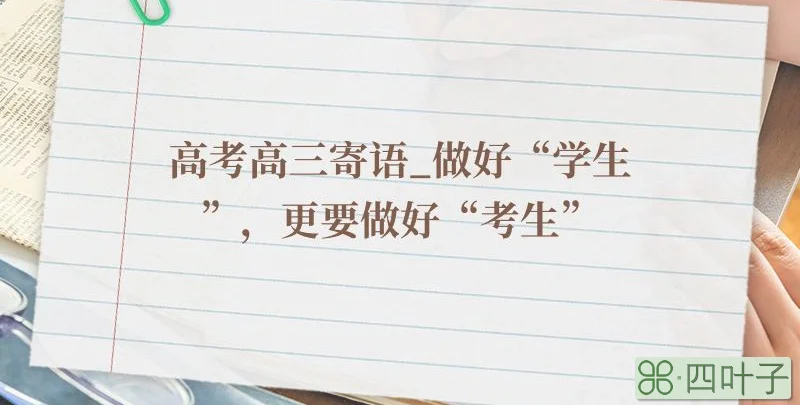 高考高三寄语_做好“学生
”，更要做好“考生”
⌘·四叶子